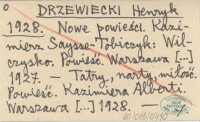 DRZEWIECKI Henryk
1928. Nowe powieści. Kazi-
mierz Saysse-Tobiczyk: Wil-
czysko. Powieść. Warszawa [...]
1927. — Tatry, narty, miłość.
Powieść. Kazimiera Alberti.
Warszawa [...] 1928. —